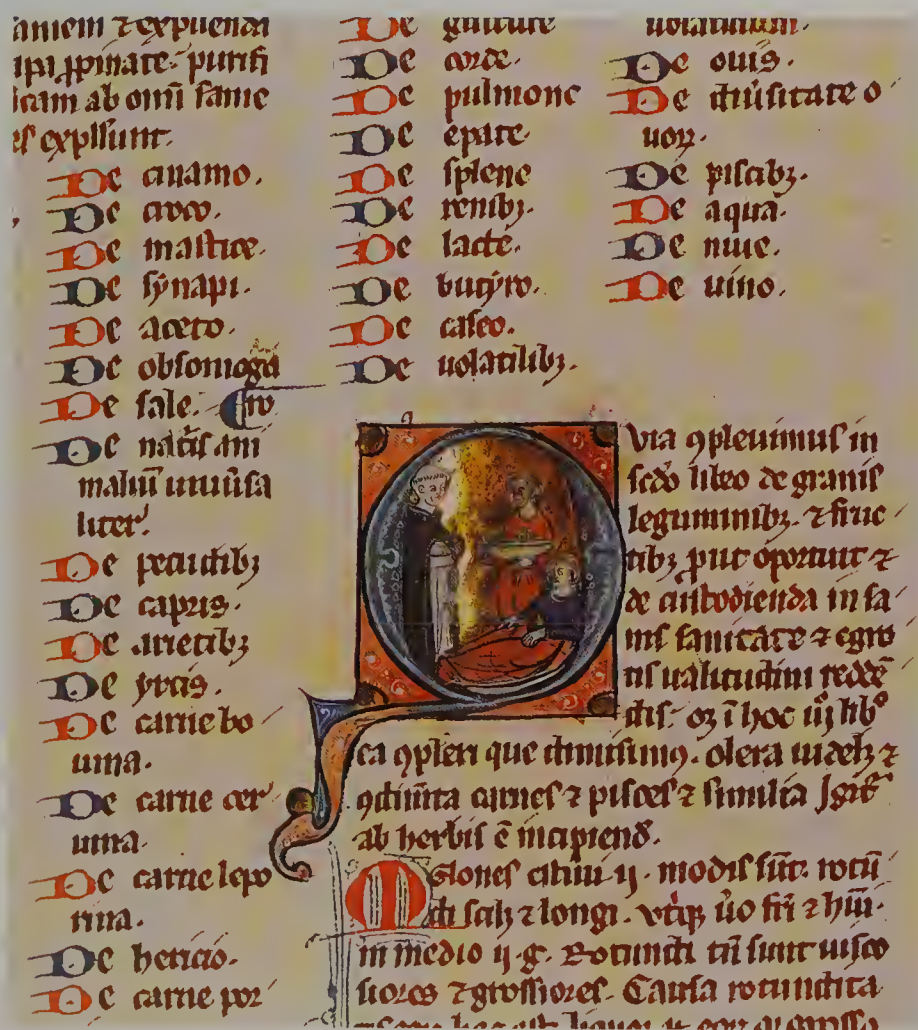 aniem ⁊ expuenda
ipa ꝓpinate· purifi
icam ab omĩ sanie
es explĩunt·
De cinamo·
De croco·
De mastice·
De sẏnapi·
De aceto·
De obsomogã
De sale·
De natĩs ani
maliũ uniũsa
liter·
De pecudibꝫ
De capris·
De arietibꝫ
De yrcis·
De carne bo
uina·
De carne cer
uina·
De carne lepo
rina·
De hericio·
De carne por
De gutture
De corde·
De pulmone
De epate
De splene
De renibꝫ·
De lacte·
De butẏro·
De caseo·
De uolatilibꝫ·
uolatilium·
De ouis·
De diũsitate o
uoꝝ·
De piscibꝫ·
De aqua·
De niue·
De uino·
Quia ꝯpleuimus in
scđo libro de granis
leguminibꝫ· ⁊ fruc
tibꝫ put oportuit ⁊
de custodienda in sa
nis sanitate ⁊ egro
tis ualitudini reddẽ
dis· oꝫ ĩ hoc iij libº
ca ꝯpleri que dimisimꝯ· olera uidelꝫ ⁊
ꝯdim̃ta carnes ⁊ pisces ⁊ similia Igit̃
ab herbis ẽ incipiend̃·
Melones citiui ij· modis sũt· rotũ
di scilꝫ ⁊ longi· vtiqꝫ ũo fri ⁊ hũi·
in medio ij·g· Rotundi tñ sunt uisco
siores ⁊ grossiores· Causa rotundita